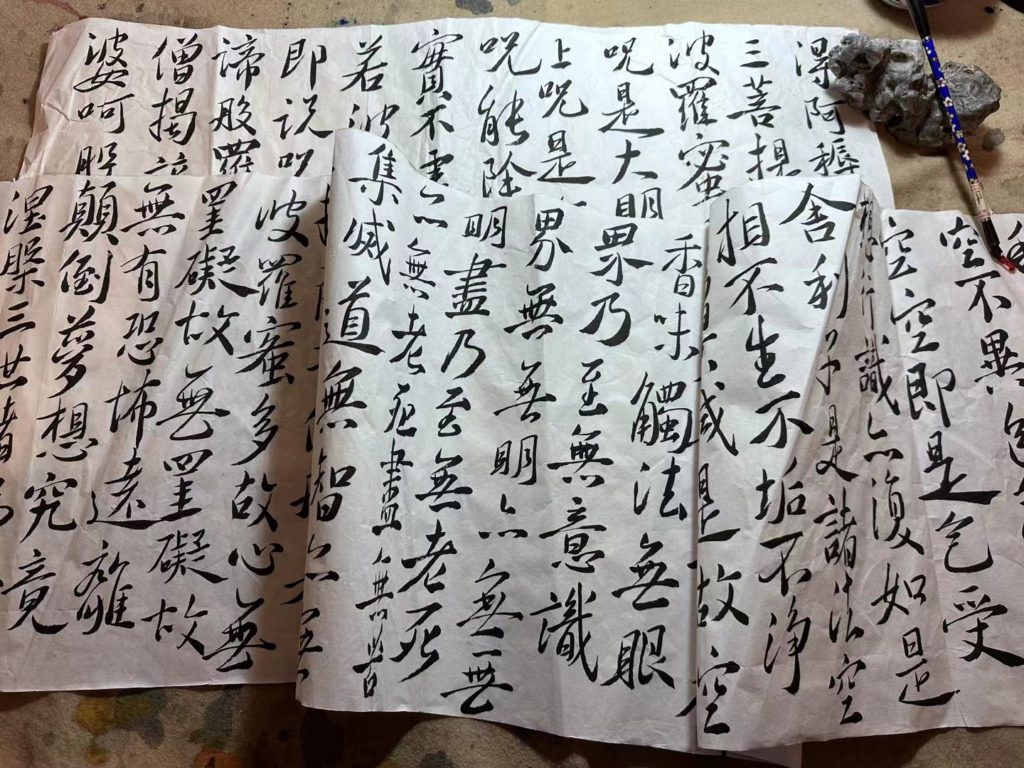 空不異色
空空即是色受
想行識亦復如是
舍利子是諸法空
相不生不垢不淨
減是故空
香味觸法無眼
界乃至無意識
界無無明亦無無
明盡乃至無老死
亦無老死盡無苦
集滅道無智亦無
波羅蜜多故心無
罣礙故無罣礙故
無有恐怖遠離
顛倒夢想究竟
涅槃三世諸
得阿耨
三菩提
波羅蜜
呪是大明
上呪是
呪能除
實不虛
若波
即說呪
諦般羅
僧揭諦
婆呵般